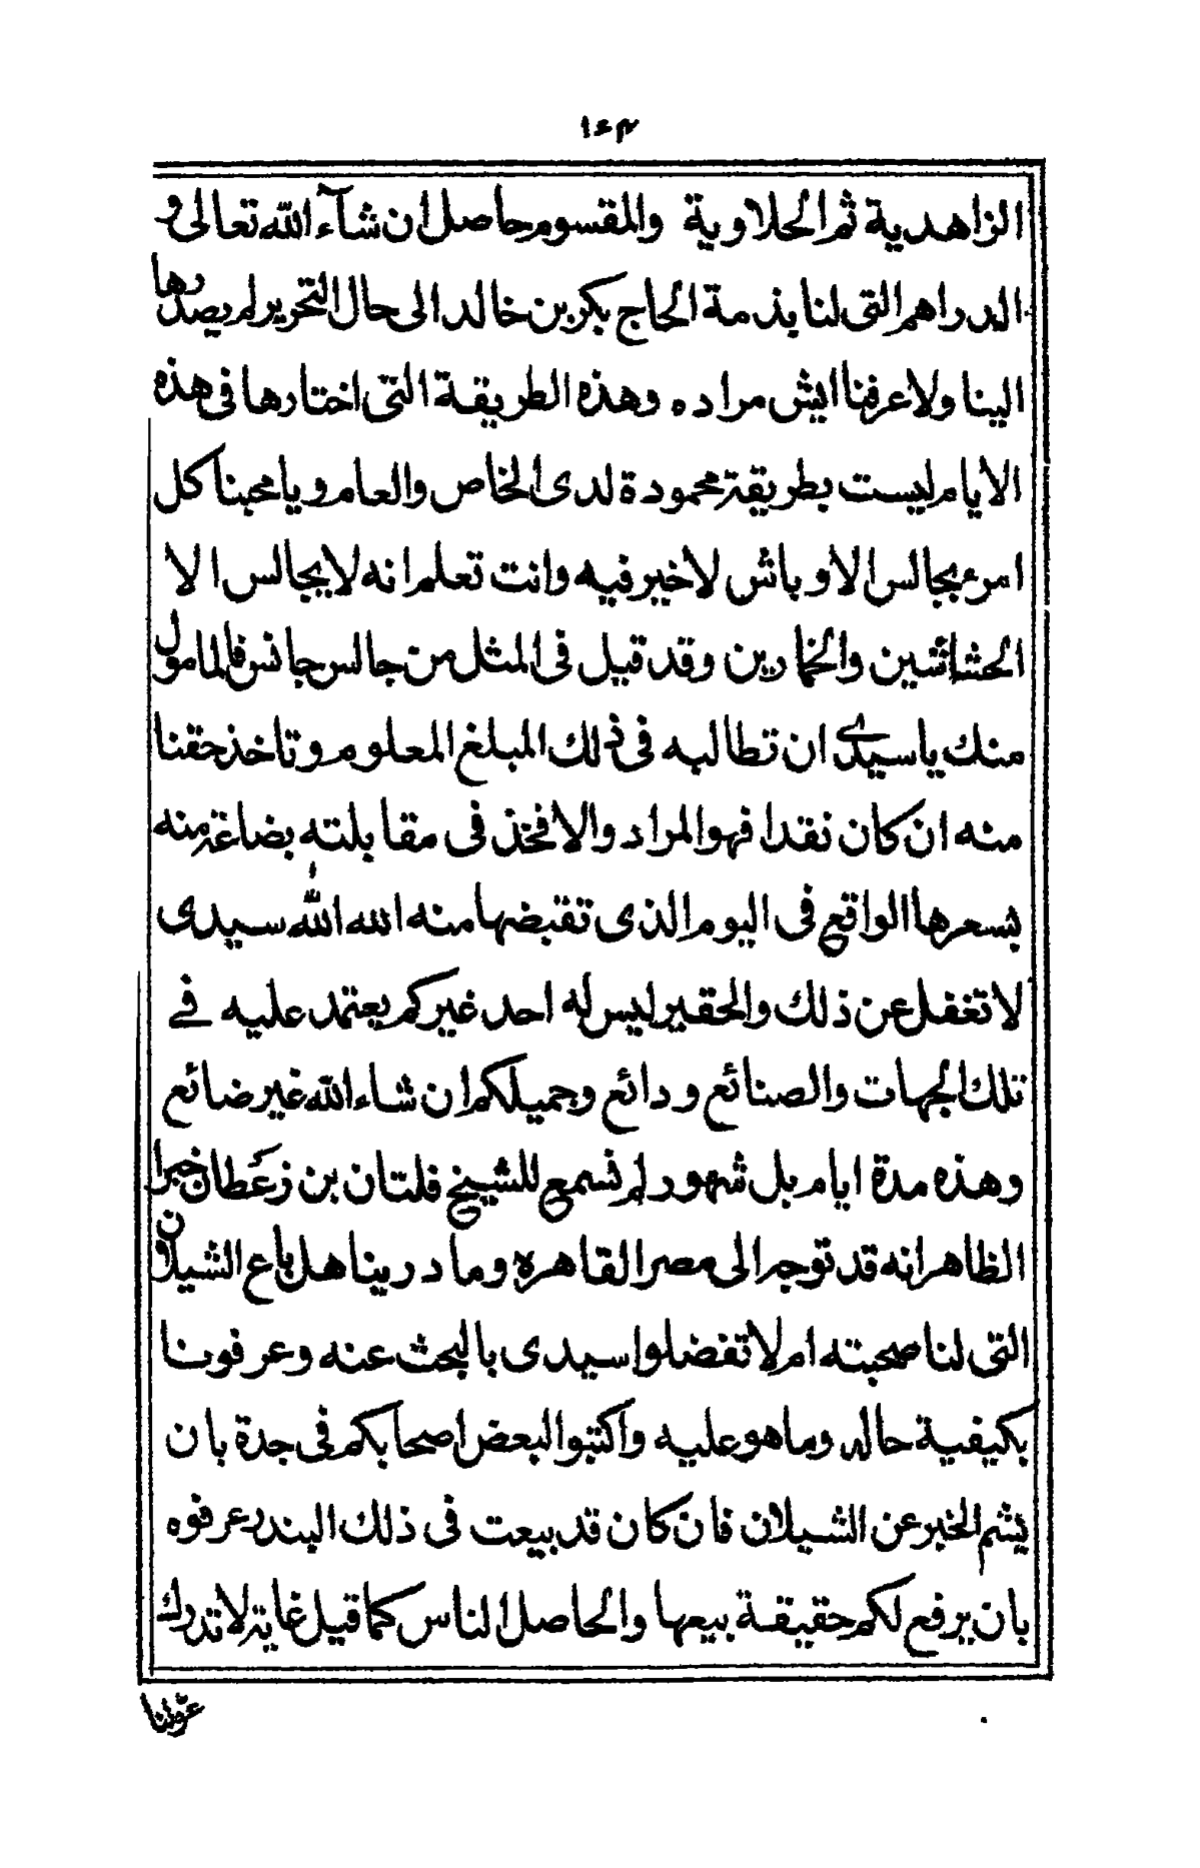 ١٤٣
الزاهدية ثم الحلاوية والمقسوم حاصل ان شآء الله تعالى و
الدراهم التى لنا بذمة الحاج بكر بن خالد الى حال التحرير لم يصدرها
الينا ولا عرفنا ايش مراده وهذه الطريقة التى اختارها فى هذه
الايام ليست بطريقة محمودة لدى الخاص والعام ويا محبنا كل
امرء يجالس الاوباش لاخير فيه وانت تعلم انه لا يجالس الا
الحشائشين والخمارين وقد قيل فى المثل من جالس جانس فالمامول
منك ياسيدى ان تطالبه فى ذلك المبلغ المعلوم وتاخذ حقنا
منه ان كان نقدا فهو المراد والا فخذ فى مقابلته بضاعة منه
بسعرها الواقع فى اليوم الذى تقبضها منه الله الله سيدى
لا تغفل عن ذلك والحقير ليس له احد غيركم يعتمد عليه فے
تلك الجهات والصنائع ودائع وجميلكم ان شاء الله غير ضائع
وهذه مدة ايام بل شهور لم نسمع للشيخ فلتان بن زعطان خبرا
الظاهر انه قد توجه الى مصر القاهرة وما درينا هل باع الشيلان
التى لنا صحبته ام لا تفضلوا سيدى بالبحث عنه وعرفونا
بكيفية حاله وما هو عليه واكتبوا لبعض اصحابكم فى جدة بان
يشم الخبر عن الشيلان فان كان قد بيعت فى ذلك البندر عرفوه
بان يرفع لكم حقيقة بيعها والحاصل الناس كما قيل غاية لا تدرك